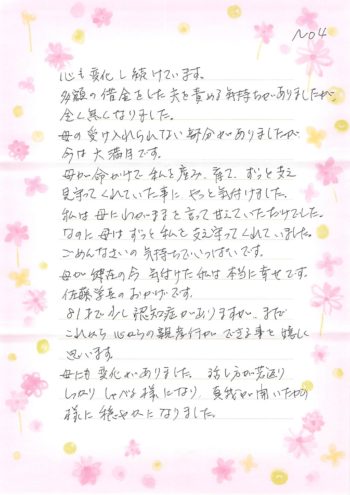 No 4
心も変化し続けています。
多額の借金をした夫を責める気持ちがありましたが、
全く無くなりました。
母の受け入れられない部分がありましたが
今は大満足です。
母が命がけで私を産み、育て、ずっと支え
見守ってくれていた事にやっと気付けました。
私は母にわがままを言って甘えていただけでした。
なのに母はずっと私を支え守ってくれていました。
ごめんなさいの気持ちでいっぱいです。
母が健在の今気付けた私は本当に幸せです。
佐藤学長のおかげです。
81才で少し認知症がありますが、まだ
これから心からの親孝行ができる事を嬉しく
思います。
母にも変化がありました。話し方が若返り
しっかりしゃべる様になり 真我が開いたかの
様に穏やかになりました。